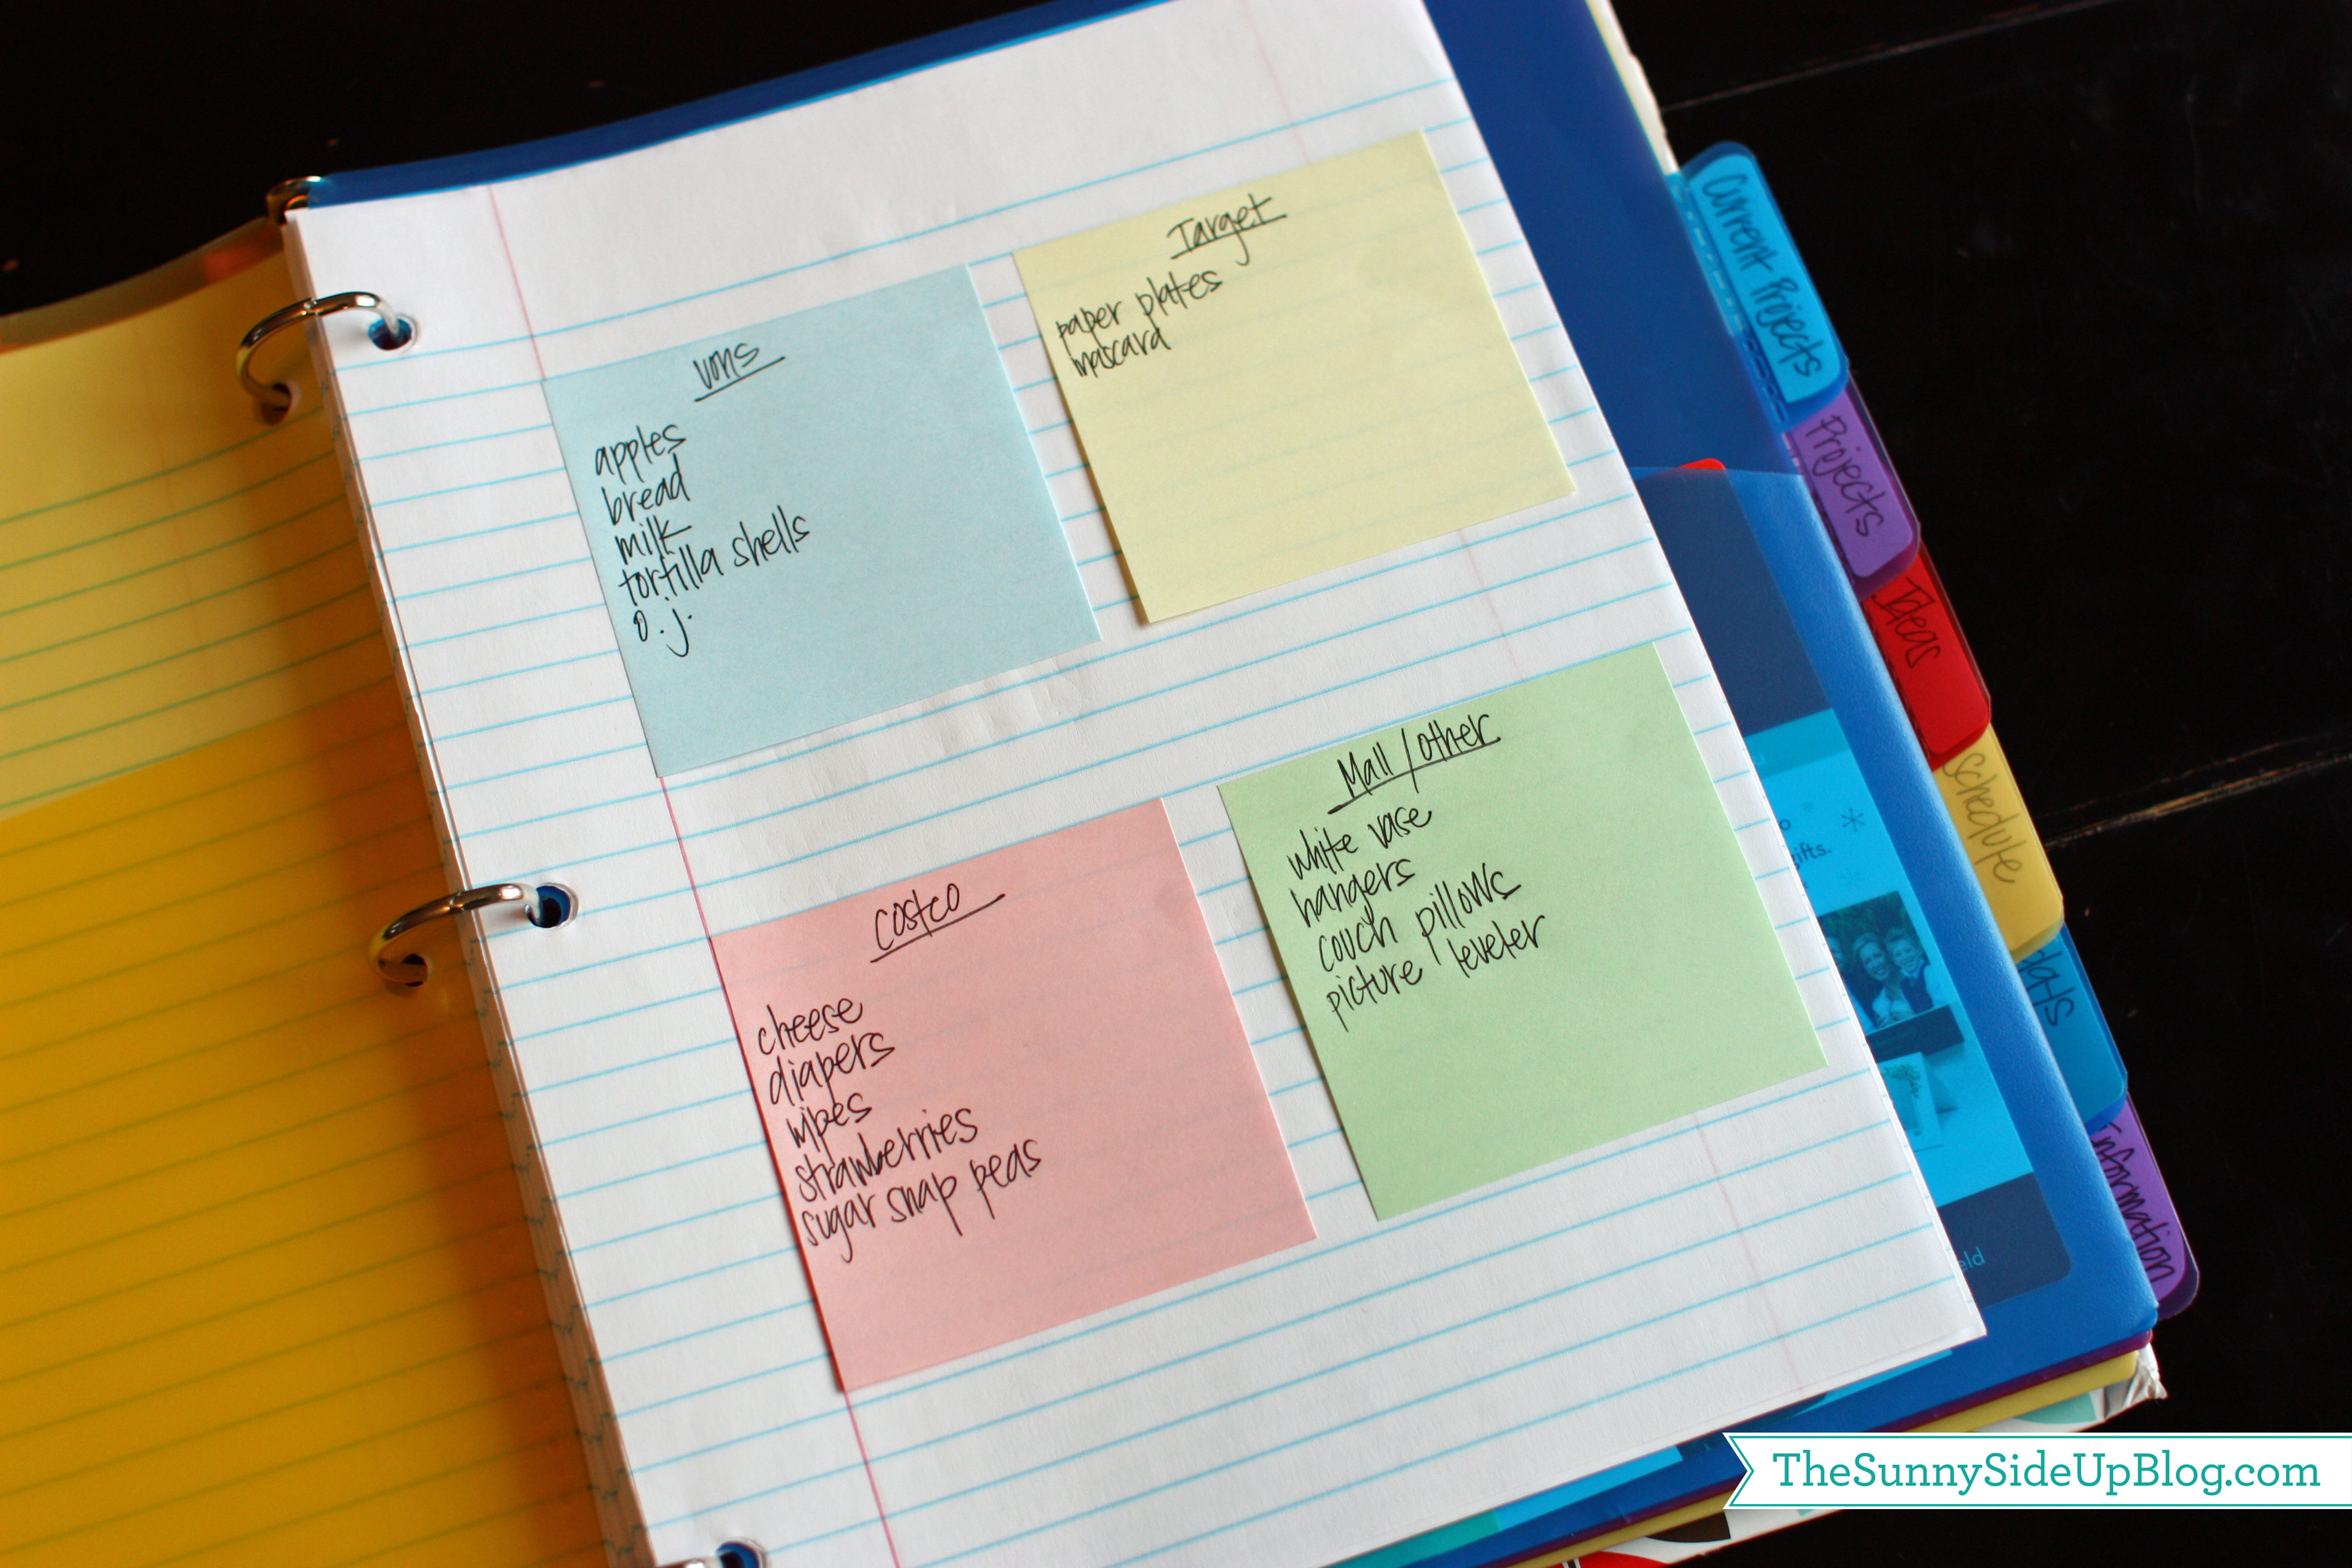 Vons
apples
bread
milk
tortilla shells
o.j.
Target
paper plates
mascara
Costco
cheese
diapers
wipes
strawberries
sugar snap peas
Mall/other
white vase
hangers
couch pillows
picture leveler
Current Projects
Projects
Ideas
Schedule
Information
gifts.
TheSunnySideUpBlog.com